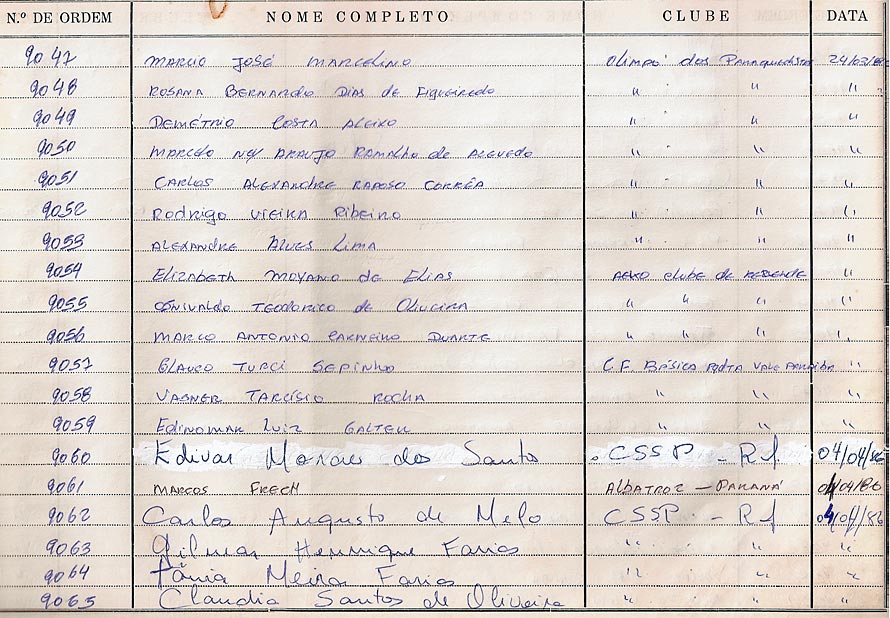 N.º DE ORDEM NOME COMPLETO CLUBE DATA
9047 MARCIO JOSÉ MARCELINO OLIMPO dos PARAQUEDISTAS 24/03/86
9048 ROSANA BERNARDO DIAS de FigueiREDO " " "
9049 DEMÉTRIO COSTA ALEIXO " " "
9050 MARCELO NEY ARAUJO RAMALHO de AZEVEDO " " "
9051 CARLOS ALEXANDRE RAPOSO CORRÊA " " "
9052 Rodrigo VIEIRA RibEIRO " " "
9053 ALEXANDRE ALVES LIMA " " "
9054 ELIZABETH MOYANO de ELIAS AERO clube de RESENDE "
9055 TEODORICO de OliVEIRA " " " "
9056 MARCO ANTONIO CARNEIRO DUARTE " " " "
9057 GLAUCO TURCI SEPINHO C.F. BÁSICA VALE PARAIBA "
9058 VAGNER TARCÍSIO ROCHA " " "
9059 EDINOMAR LUIZ " " "
9060 Edivar Moraes dos Santos CSSP - RJ 04/04/86
9061 MARCOS FRECH ALBATROZ - PARANÁ 04/04/86
9062 Carlos Augusto de Melo CSSP - RJ 04/04/86
9063 Gilmar Henrique Farias " " "
9064 Tânia Meira Farias " " "
9065 Claudia Santos de Oliveira " " "